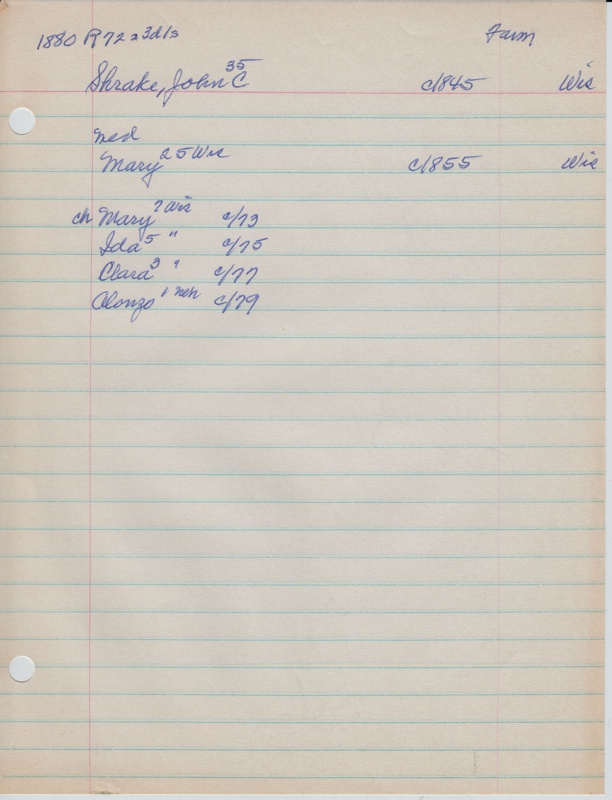 1880 R 72 23d/s Farm
Shrake, John C 35 c/845 Wis
med
Mary 25 Wis c/855 Wis
ch Mary 7 Wis c/73
Ida 5 " c/75
Clara 3 " c/77
Alonzo 1 neh c/79